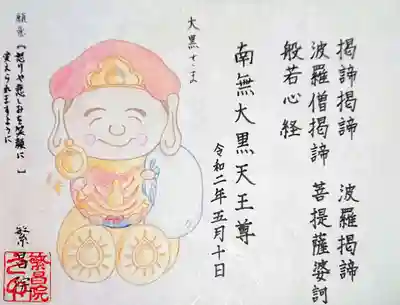 掲諦掲諦　波羅掲諦
波羅僧掲諦　菩提薩婆訶
般若心経
南無大黒天王尊
令和二年五月十日
大黒さま
願意『怒りや悲しみを笑顔に
変えられますように』
繁昌院
繁昌院